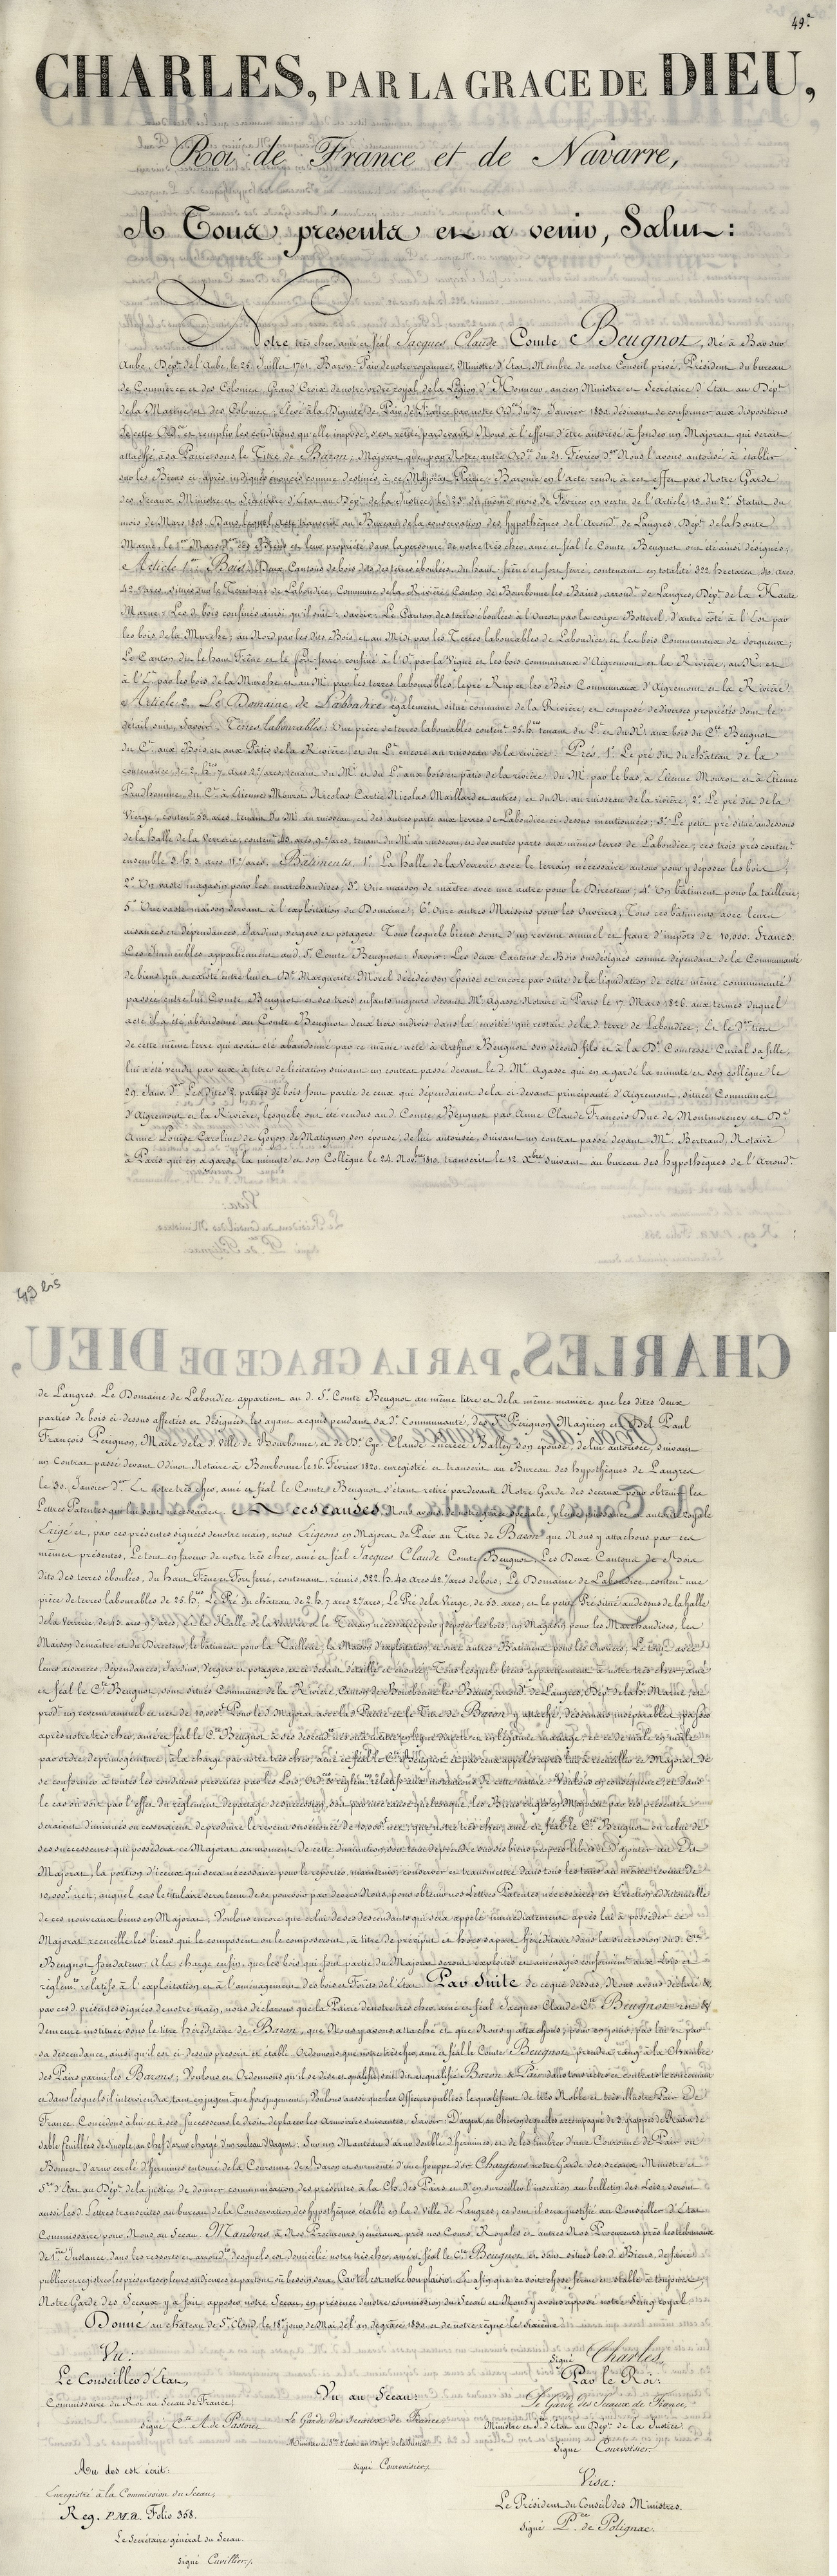 49.e
CHARLES, PAR LA GRACE DE DIEU,
Roi de France et de Navarre,
A Tous présents et à venir, Salut:
Notre très cher, amé et féal Jacques Claude Comte Beugnot, né à Bar sur
Aube, Dépt. de l'Aube, le 25 Juillet 1761, Baron-Pair de notre royaume, Ministre d'État, Membre de notre Conseil privé, Président du bureau
de Commerce et des Colonies, Grand Croix de notre ordre royal de la Légion d'Honneur, ancien Ministre et Secrétaire d'État au Dépt.
de la Marine et des Colonies; élevé à la Dignité de Pair de France par notre Ordce. du 27 Janvier 1830. désirant se conformer aux dispositions
de cette Ordce. et remplir les conditions qu'elle impose, s'est retiré pardevant Nous à l'effet d'être autorisé à fonder un Majorat qui serait
attaché à sa Pairie sous le Titre de Baron; Majorat que par Notre autre Ordce. du 21 Février der. Nous l'avons autorisé à établir
sur les Biens ci-après indiqués énoncés comme destinés à ce Majorat Pairie-Baronie en l'acte rendu à cet effet par Notre Garde
des Sceaux Ministre et Secrétaire d'État au Dépt. de la Justice, le 25 du même mois de Février en vertu de l'Article 13 du 2e. Statut du
mois de Mars 1808. Dans lequel Acte transcrit au Bureau de la conservation des hypothèques de l'Arrondt. de Langres, Dépt. de la haute
Marne, le 1er Mars der. les Biens et leur propriété dans la personne de notre très cher, amé et féal le Comte Beugnot ont été ainsi désignés:
Article 1er. Bois. Deux Cantons de bois dits des terres éboulées, du haut-frêne et fort ferré, contenant en totalité 322 hectares 40 ares
42 c/ares, situés sur le Territoire de Labondice, Commune de la Rivière, Canton de Bourbonne les Bains, arrondt. de Langres, Dépt. de la Haute
Marne. Les d. bois confinés ainsi qu'il suit: savoir: Le Canton des terres éboulées à l'Ouest par la coupe Botterel, d'autre côté à l'Est par
les bois de la Murche; au Nord par les dits Bois et au Midi par les Terres labourables de Labondice, et les bois Communaux de Serqueux;
Le Canton dit le haut Frêne et le fort-ferré, confiné à l'O. par la Vigne et les bois communaux d'Aigremont et la Rivière, au N. et
à l'E. par les bois de la Murche et au M. par les terres labourables, le pré Rup et les Bois Communaux d'Aigremont et la Rivière.
Article 2. Le Domaine de Labondice également situé commune de la Rivière, et composé de diverses propriétés dont le
détail suit, Savoir: Terres labourables: Une pièce de terres labourables content. 25 hres tenant du L. et du N. aux bois du Cte. Beugnot
du C. aux Bois et aux Pâtis de la Rivière, et du L. encore au ruisseau de la rivière. Prés. 1°. Le pré dit du château de la
contenance de 2 hres 7 ares 2 c/ares, tenant du M. et du L. aux bois et pâtis de la rivière, du M. par le bas, à Etienne Mourot et à Etienne
Prudhomme, du C. à Etienne Mourot Nicolas Cartié Nicolas Maillard et autres, et du N. au ruisseau de la rivière; 2°. Le pré dit de la
Vierge, content. 53 ares, tenant du M. au ruisseau, et des autres parts aux terres de Labondice ci-dessus mentionnées; 3°. Le petit pré situé au dessous
de la halle de la Verrerie, content. 43 ares 9 c/ares, tenant du M. au ruisseau, et des autres parts aux mêmes terres de Labondice; ces trois prés content.
ensemble 3 h. 3 ares 11 c/ares. Bâtiments. 1°. La halle de la Verrerie avec le terrain nécessaire autour pour y déposer les bois;
2°. Un vaste magasin pour les marchandises; 3°. Une maison de maître avec une autre pour le Directeur; 4°. Un bâtiment pour la taillerie;
5°. Une vaste maison servant à l'exploitation du Domaine; 6°. Onze autres Maisons pour les Ouvriers; Tous ces bâtiments avec leurs
aisances et dépendances, Jardins, vergers et potagers. Tous lesquels biens sont d'un revenu annuel et franc d'impôts de 10,000 Francs.
Ces immeubles appartiennent aud. Sr. Comte Beugnot: Savoir: Les deux Cantons de Bois susdésignés comme dépendant de la Communauté
de biens qui a existé entre lui et De. Marguerite Morel décédée son épouse et encore par suite de la liquidation de cette même communauté
passée entre lui Comte Beugnot et ses trois enfants majeurs devant Me. Agasse Notaire à Paris le 17 Mars 1826. aux termes duquel
acte il a été abandonné au Comte Beugnot deux tiers indivis dans la moitié qui restait de la d. terre de Labondice; Et le der. tiers
de cette même terre qui avait été abandonné par ce même acte à Arthur Beugnot son second fils et à la De. Comtesse Curial sa fille,
lui a été vendu par eux à titre de licitation suivant un contrat passé devant le d. Me. Agasse qui en a gardé la minute et son collègue le
29 Janv. der. Les dites 2 parties de bois font partie de ceux qui dépendaient de la ci-devant principauté d'Aigremont, située Communes
d'Aigremont et la Rivière, lesquels ont été vendus aud. Comte Beugnot par Anne Claude François Duc de Montmorency et De.
Anne Louise Caroline de Goyon de Matignon son épouse, de lui autorisée, suivant un contrat passé devant Me. Bertrand, Notaire
à Paris qui en a gardé la minute et son Collègue le 24 Novbre 1810. transcrit le 12 Xbre suivant au bureau des hypothèques de l'Arrondt.
49 bis
de Langres. Le Domaine de Labondice appartient au d. Sr. Comte Beugnot au même titre et de la même manière que les dites deux
parties de bois ci-dessus affectées et désignées, les ayant acquis pendant sa de. Communauté, des Srs. Pérignon, Magnien et Bel Paul
François Pérignon, Maire de la d. ville de Bourbonne, et de De. Claude Lucrèce Bailly son épouse, de lui autorisée, suivant
un Contrat passé devant Odinot Notaire à Bourbonne le 16 Février 1820. enregistré et transcrit au Bureau des hypothèques de Langres
le 30 Janvier der. Et notre très cher, amé et féal le Comte Beugnot s'étant retiré pardevant Notre Garde des sceaux pour obtenir les
Lettres Patentes qui lui sont nécessaires; A ces causes, Nous avons, de notre grâce spéciale, pleine puissance et autorité royale
Erigé et, par ces présentes signées de notre main, nous Erigeons en Majorat de Pair au Titre de Baron que Nous y attachons par ces
mêmes présentes, Le tout en faveur de notre très cher, amé et féal Jacques Claude Comte Beugnot, Les Deux Cantons de Bois
dits des terres éboulées, du haut Frêne et Fort ferré, contenant, réunis, 322 h. 40 ares 42 c/ares de bois; Le Domaine de Labondice, content. une
pièce de terres labourables de 25 hres. Le Pré du château de 2 h. 7 ares 2 c/ares; Le Pré de la Vierge, de 53 ares, et le petit Pré situé au dessous de la halle
de la verrerie, de 43 ares 9 c/ares. de la Halle de la Verrerie et le Terrain nécessaire pour y déposer les bois, un Magasin pour les Marchandises, les
Maison de maître et du Directeur, le bâtiment pour la Taillerie, la Maison d'exploitation, et onze autres Bâtiments pour les Ouvriers; Le tout avec
leurs aisances, dépendances, Jardins, Vergers et potagers, et ci devant détaillé et énoncé; Tous lesquels biens appartiennent à notre très cher, amé
et féal le Cte. Beugnot, sont situés Commune de la Rivière, Canton de Bourbonne les Bains, arrondt. de Langres, Dépt. de la h. Marne, et
prodt. un revenu annuel et net de 10,000 f. Pour le d. Majorat avec la Pairie et le Titre de Baron y attaché, désormais inséparables, passer
après notre très cher, amé et féal le Cte. Beugnot à ses descendts. nés et à naître en ligne directe et en légitime mariage, et ce de mâle en mâle
par ordre de primogéniture, à la charge par notre très cher, amé et féal le Cte. Beugnot et par ceux appelés après lui à recueillir ce Majorat de
se conformer à toutes les conditions prescrites par les Lois, Ordces. et règlemts. relatifs aux institutions de cette nature. Voulons en conséquence, et dans
le cas où soit par l'effet du règlement de partage de succession, soit par autre cause quelconque, les Biens érigés en Majorat par ces présentes
seraient diminués ou cesseraient de produire le revenu susénoncé de 10,000 f. net, que notre très cher, amé et féal le Cte. Beugnot ou celui de
ses successeurs qui possédera ce Majorat au moment de cette diminution, soit tenu de prendre sur ses biens propres libres et d'ajouter au dit
Majorat, la portion d'iceux qui sera nécessaire pour le reporter, maintenir, conserver et transmettre dans tous les tems au même revenu de
10,000 f. net; auquel cas le titulaire sera tenu de se pourvoir par devers Nous, pour obtenir nos Lettres Patentes nécessaires en Erection additionnelle
de ces nouveaux biens en Majorat; Voulons encore que celui de ses descendants qui sera appelé immédiatement après lui à posséder ce
Majorat recueille les biens qui le composent ou le composeront, à titre de préciput et hors sa part héréditaire dans la succession du d. Cte.
Beugnot fondateur. A la charge enfin, que les bois qui font partie du Majorat seront exploités et aménagés conformémt. aux Lois et
règlemts. relatifs à l'exploitation et à l'aménagement des bois et Forêts de l'État. Par Suite de ce que dessus, Nous avons déclaré &
par ces d. présentes signées de notre main, nous déclarons que la Pairie de notre très cher, amé et féal Jacques Claude Cte. Beugnot est &
demeure instituée sous le titre héréditaire de Baron, que Nous y avons attaché et que Nous y attachons; pour en jouir, par lui et par
sa descendance, ainsi qu'il est ci-dessus prescrit et établi. Ordonnons que notre très cher, amé et féal le Comte Beugnot prendra rang à la Chambre
des Pairs parmi les Barons; Voulons et Ordonnons qu'il se dise et qualifie, soit dit et qualifié Baron & Pair dans tous actes et contrats le concernant
et dans lesquels il interviendra, tant en jugemt. que hors jugement; Voulons aussi que les Officiers publics le qualifient de très Noble et très illustre Pair de
France. Concédons à lui et à ses successeurs le droit de placer les Armoiries suivantes, Savoir: D'argent, au Chevron de gueules accompagné de 3 grappes de Raisin de
sable feuillées de Sinople, au chef d'azur chargé d'un rouleau d'Argent. Sur un Manteau d'azur doublé d'hermines, et de les timbrer d'une Couronne de Pair ou
Bonnet d'azur cerclé d'hermines entouré de la Couronne de Baron et surmonté d'une houppe d'or. Chargeons notre Garde des sceaux Ministre et
Sre. d'État au Dépt. de la justice de donner communication des présentes à la Ch. des Pairs et d'en surveiller l'insertion au bulletin des Lois; seront
aussi les d. Lettres transcrites au bureau de la Conservation des hypothèques établi en la d. Ville de Langres; ce dont il sera justifié au Conseiller d'État
Commissaire pour Nous au Sceau. Mandons à Nos Procureurs généraux près nos Cours Royales et autres Nos Procureurs près les tribunaux
de 1ère Instance, dans les ressorts et arrondts. desquels est domicilié notre très cher, amé et féal le Cte. Beugnot et sont situés les d. Biens, de faire
publier et registrer les présentes en leurs audiences et partout où besoin sera; Car tel est notre bon plaisir. Et afin que ce soit chose ferme et stable à toujours,
Notre Garde des Sceaux y a fait apposer notre Sceau, en présence de notre commission du Sceau et Nous y avons apposé notre Seing royal.
Donné au château de St. Cloud, le 18e jour de Mai, de l'an de grâce 1830. et de notre règne le sixième.
Signé Charles,
Vu:
Le Conseiller d'État,
Commissaire du Roi au Sceau de France,
signé Cte. A. de Pastoret
Vu au Sceau:
Le Garde des Sceaux de France,
Ministre et Sre. d'État au Dépt. de la Justice
signé Courvoisier.
Par le Roi:
Le Garde des Sceaux de France,
Ministre et S. d'État au Dépt. de la Justice.
Signé Courvoisier.
Au dos est écrit:
Enregistré à la Commission du Sceau,
Reg. P.M.2. Folio 358.
Le Secrétaire général du Sceau.
signé Cuvillier.
Visa:
Le Président du Conseil des Ministres.
signé Pce. de Polignac.